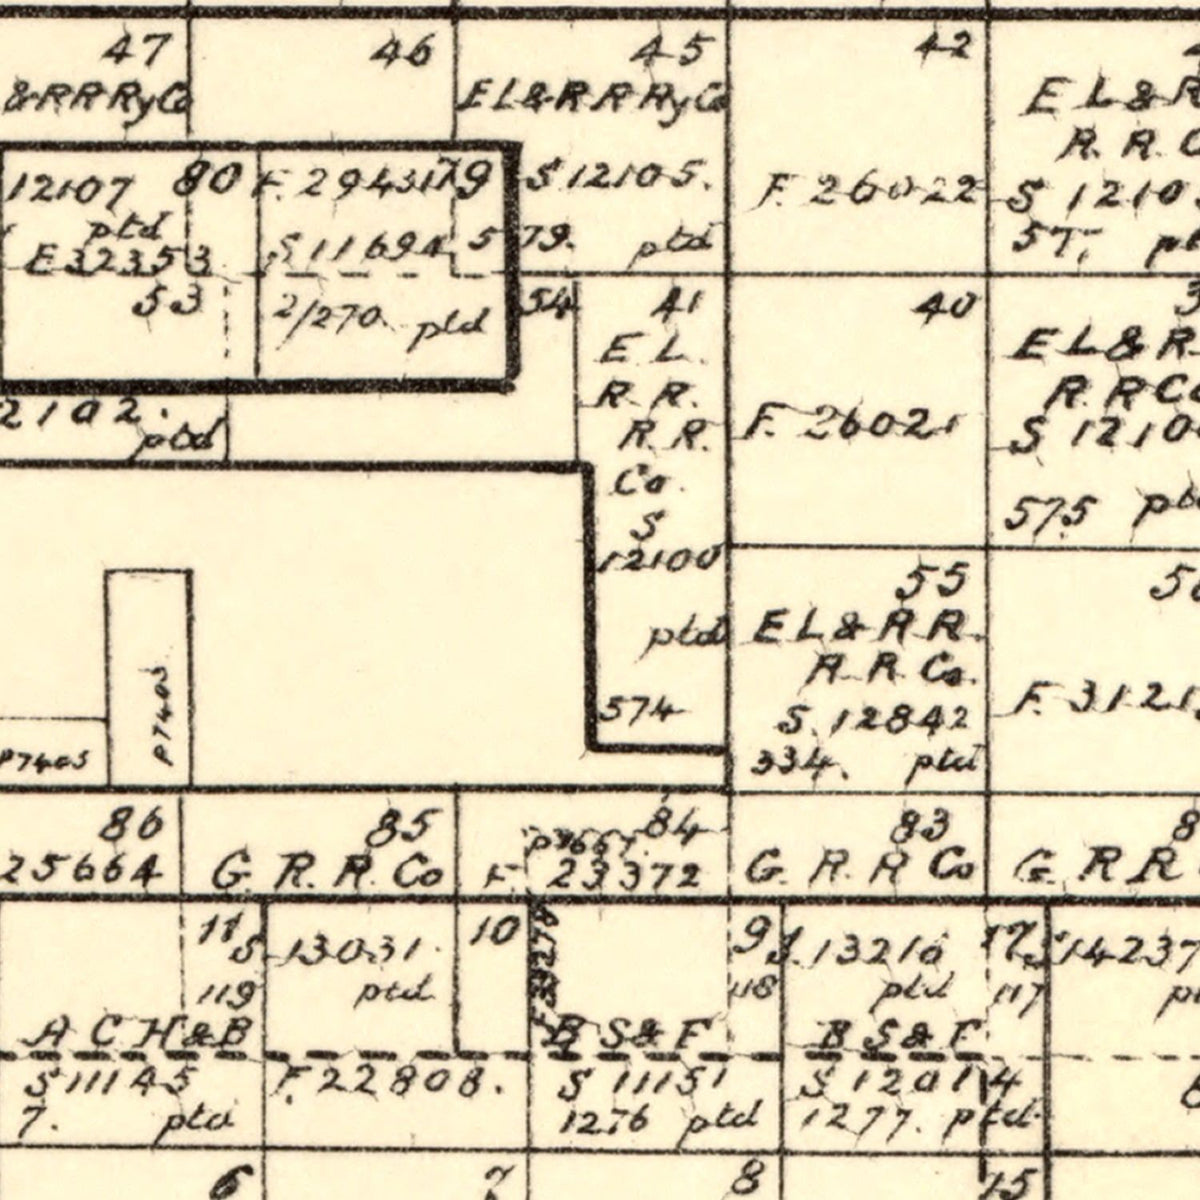 47
&RRRyCo
46
45
EL&RRRyCo
42
EL&R
R.R.C
12107
80
F. 29431
79
S 12105.
F. 26022
S 1210
ptd
E32353
S 11694
579.
ptd
57.
53
2/270. ptd
54
41
40
E L.
R. R.
R. R.
Co.
S
12100
ptd
574
EL&R.
R.R Co
S 1210
575 ptd
2102.
ptd
F. 26021
55
EL&RR.
R.R Co.
S. 12842
334. ptd
F. 3121
P7405
P7405
86
25664
85
G. R. R. Co
84
F. 23372
83
G. R R Co
8
G. RR
11
S 13031.
ptd
119
A C H&B
S 11145
7. ptd
10
F. 22808.
9
118
B S&F
S 11151
1276 ptd
S. 13216
ptd
117
B S&F
S 12014
1277. ptd.
S 14237
6
7
8
15